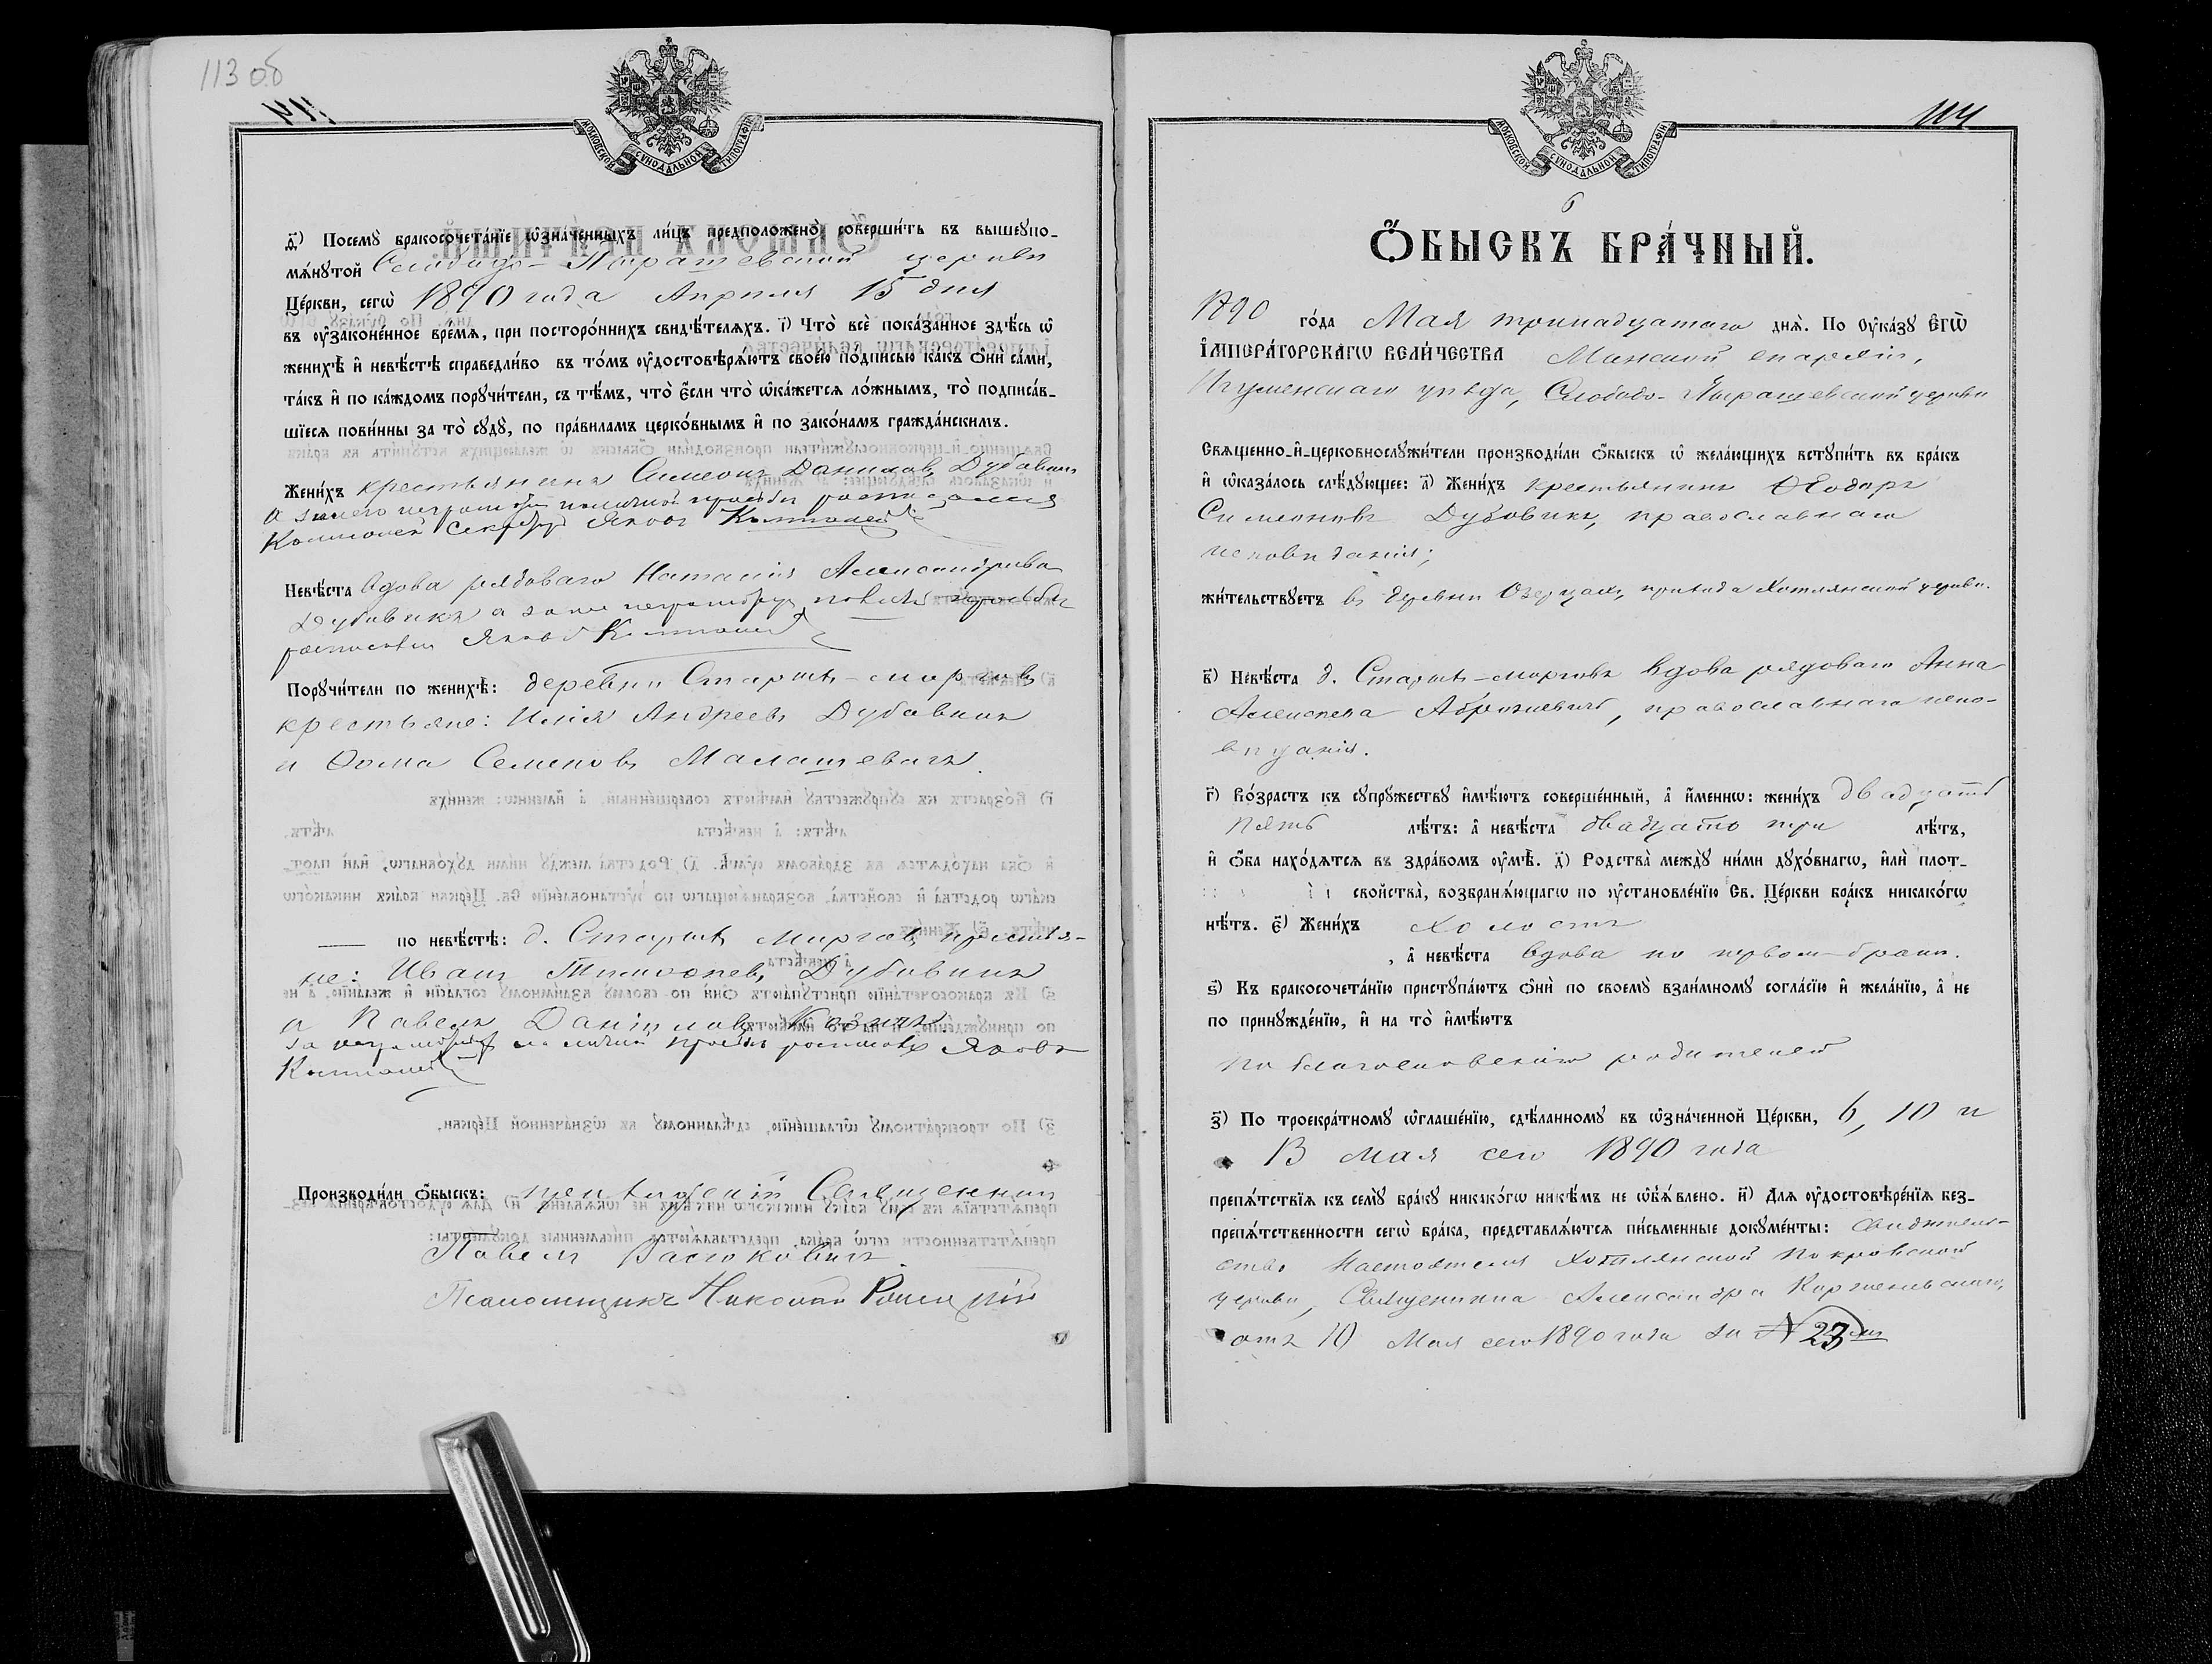 113 об
114
МОСКОВСКОЙ СѴНОДАЛЬНОЙ ТИПОГРАФІИ
ѳ҃) Посемꙋ̀ бракосочета́нїе ѡ҆зна́ченныхъ ли́цъ предположено̀ соверши́ть въ вышеꙋпо-
мѧ́нꙋтой Слободо-Пырашевской церкви
Це́ркви, сегѡ̀ 1890 года Апреля 15 дня
въ ᲂу҆законе́нное вре́мѧ, при посторо́ннихъ свидѣ́телѧхъ. і҃) Что̀ всѐ пока́занное здѣ́сь ѡ҆
женихѣ̀ и҆ невѣ́стѣ справедли́во въ то́мъ ᲂу҆достовѣрѧ́ютъ свое́ю по́дписью ка́къ ѻ҆нѝ са́ми,
та́къ и҆ по ка́ждомъ порꙋчи́тели, съ тѣ́мъ, что̀ є҆́сли что̀ ѡ҆ка́жется ло́жнымъ, то̀ подписа́в-
шїесѧ пови́нны за то̀ сꙋдꙋ̀, по пра́виламъ церко́внымъ и҆ по зако́намъ гражда́нскимъ.
Жени́хъ крестьянинъ Симеонъ Данилов Дубовикъ
а за него неграмотн. по личной просьбе росписался
Яковъ
Невѣ́ста вдова рядоваго Наталія Александрова
Дубовикъ а за нее неграмотную по ея просьбе
росписался Яковъ
Порꙋчи́тели по женихѣ̀: деревни Старыхъ-моргов
крестьяне: Илія Андреев Дубовикъ
и Ѳома Семеновъ Малашевичъ.
по невѣ́стѣ: д. Старых Моргов, крестья-
не: Иванъ Тимоѳеев Дубовикъ
и Павелъ Данилов
за неграмотных по личной просьбе росписался Яковъ
Производи́ли ѻ҆́быскъ: приходскій Священникъ
Павелъ Васюковичъ.
Псаломщикъ Николай
114
МОСКОВСКОЙ СѴНОДАЛЬНОЙ ТИПОГРАФІИ
6
Ѻ҆́БЫСКЪ БРА́ЧНЫЙ.
1890 го́да Мая тринадцатаго днѧ̀. По ᲂу҆ка́зꙋ Є҆гѡ̀
І҆МПЕРА́ТОРСКАГѠ ВЕЛИ́ЧЕСТВА Минской епархіи,
Игуменскаго уезда, Слободо-Пырашевской церкви
Свѧще́нно-и҆-церковнослꙋжи́тели производи́ли ѻ҆́быскъ ѡ҆ жела́ющихъ встꙋпи́ть въ бра́къ
и҆ ѡ҆каза́лось слѣ́дꙋющее: а҃) Жени́хъ крестьянинъ Ѳеодоръ
Симеоновъ Дубовикъ, православнаго
исповеданія;
жи́тельствꙋетъ въ деревни Озерцахъ, прихода Хотлянской церкви.
в҃) Невѣ́ста д. Старыхъ-морговъ вдова рядоваго Анна
Алексеева, православнаго испо-
веданія.
г҃) Во́зрастъ къ сꙋпрꙋ́жествꙋ и҆мѣ́ютъ соверше́нный, а҆ и҆́меннѡ: жени́хъ двадцать
пять лѣ́тъ: а҆ невѣ́ста двадцать три лѣ́тъ,
и҆ ѻ҆́ба нахо́дѧтсѧ въ здра́вомъ ᲂу҆мѣ̀. д҃) Родства̀ междꙋ̀ ни́ми дꙋхо́внагѡ, и҆лѝ плот-
свойства̀, возбранѧ́ющагѡ по ᲂу҆становле́нїю Св. Це́ркви бра́къ никако́гѡ
нѣ́тъ. є҃) Жени́хъ холостъ
, а҆ невѣ́ста вдова по первом браке.
ѕ҃) Къ бракосочета́нїю пристꙋпа́ютъ ѻ҆нѝ по своемꙋ̀ взаи́мномꙋ согла́сїю и҆ жела́нїю, а҆ не
по принꙋжде́нїю, и҆ на то̀ и҆мѣ́ютъ
по благословенію родителей
з҃) По троекра́тномꙋ ѡ҆глаше́нїю, сдѣ́ланномꙋ въ ѡ҆зна́ченной Це́ркви, 6, 10 и
13 мая сего 1890 года
препѧ́тствїѧ къ семꙋ̀ бра́кꙋ никако́гѡ никѣ́мъ не ѡ҆б̾ѧ́влено. и҃) Длѧ ᲂу҆достовѣре́нїѧ без-
препѧ́тственности сегѡ̀ бра́ка, представлѧ́ютсѧ пи́сьменные докꙋме́нты: свидетель-
ство Настоятеля Хотлянской Покровской
церкви, Священника Александра
отъ 10 Мая сего 1890 года за № 23